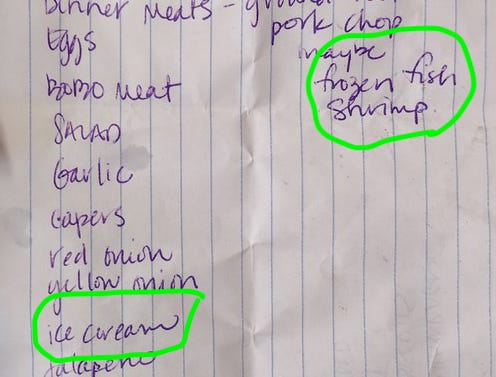 Dinner Meats - ground
pork chop
maybe
frozen fish
shrimp
Eggs
BOBO meat
SALAD
Garlic
capers
red onion
yellow onion
ice cream
Jalapeno